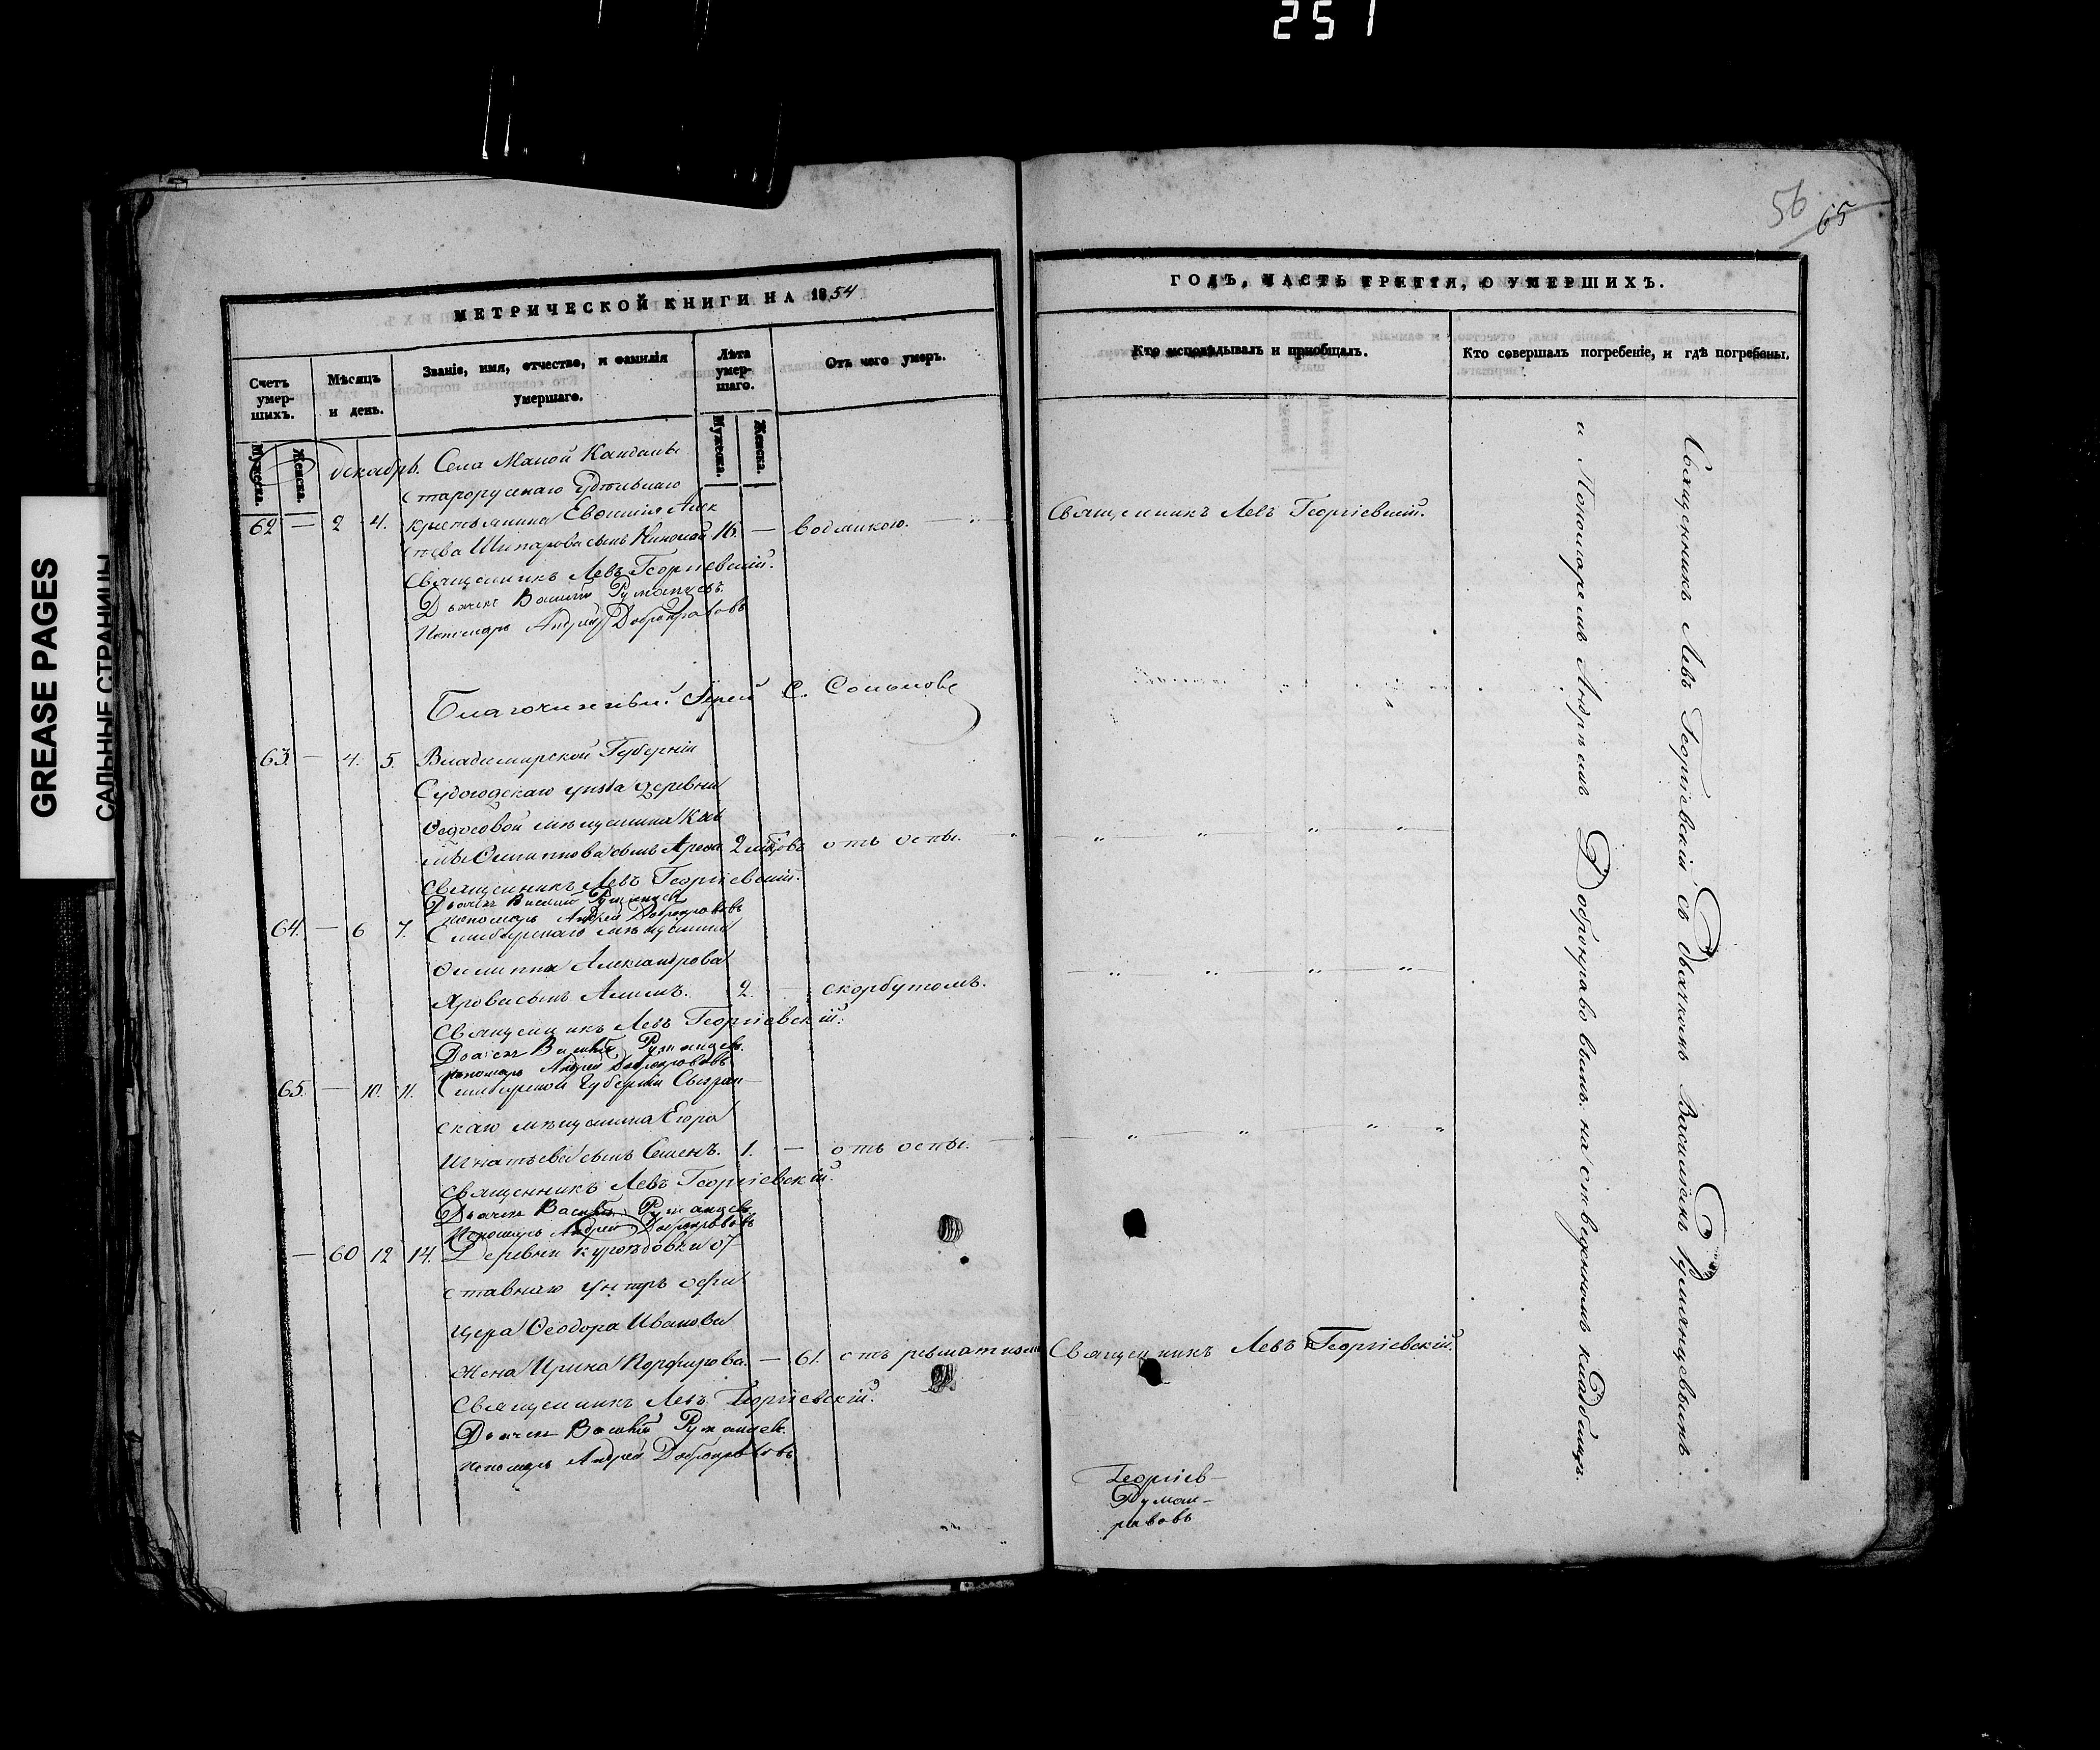 251
GREASE PAGES
САЛЬНЫЕ СТРАНИЦЫ
56 65
МЕТРИЧЕСКОЙ КНИГИ НА 1854
Счетъ умер-шихъ.
Мѣсяцъ и день.
Званіе, имя, отчество, и фамилія умершаго.
Лѣта умер-шаго.
Отъ чего умеръ.
Мужеска.
Женска.
Мужеска.
Женска.
декабрь. Села Малой Кандалы
старорускаго удѣльнаго
62 — 2 4. крестьянина Евфимія Алек
сѣева сынъ Николай 16. — водянкою.
Священникъ Левъ Георгіевскій.
Дьячекъ Василій Румянцевъ.
Пономарь Андрей Добронравовъ
Благочинный Іерей С.
63. — 4. 5. Владимирской Губерніи
Судогодскаго уѣзда деревни
Ѳедосовой мѣщанина
Филиппова сынъ 2 мѣсяцовъ отъ оспы.
Священникъ Левъ Георгіевскій.
Дьячекъ Василій Румянцевъ
Пономарь Андрей Добронравовъ
64. — 6 7. Симбирскаго мѣщанина
Филиппа Александрова
сынъ 2. — скорбутомъ.
Священникъ Левъ Георгіевскій.
Дьячекъ Василій Румянцевъ.
Пономарь Андрей Добронравовъ
65. — 10. 11. Симбирской Губерніи Сызран-
скаго мѣщанина Егора
Игнатьева сынъ Семенъ. 1. — отъ оспы.
Священникъ Левъ Георгіевскій.
Дьячекъ Василій Румянцевъ
Пономарь Андрей Добронравовъ
— 60 12 14. Деревни Куроѣдовки от
ставнаго унтръ офи
цера Ѳеодора Иванова
жена Ирина Порфирова. — 61. отъ ревматизма
Священникъ Левъ Георгіевскій.
Дьячекъ Василій Румянцевъ.
Пономарь Андрей Добронравовъ.
ГОДЪ, ЧАСТЬ ТРЕТІЯ, О УМЕРШИХЪ.
Кто исповѣдывалъ и пріобщалъ.
Кто совершалъ погребеніе, и гдѣ погребены.
Священникъ Левъ Георгіевскій.
Священникъ Левъ Георгіевскій.
Священникъ Левъ Георгіевскій съ Дьячкомъ Василіемъ Румянцевымъ
и Пономаремъ Андреемъ Добронравовымъ. на отведенномъ кладбищѣ.
Георгіев-
Румян-
равовъ